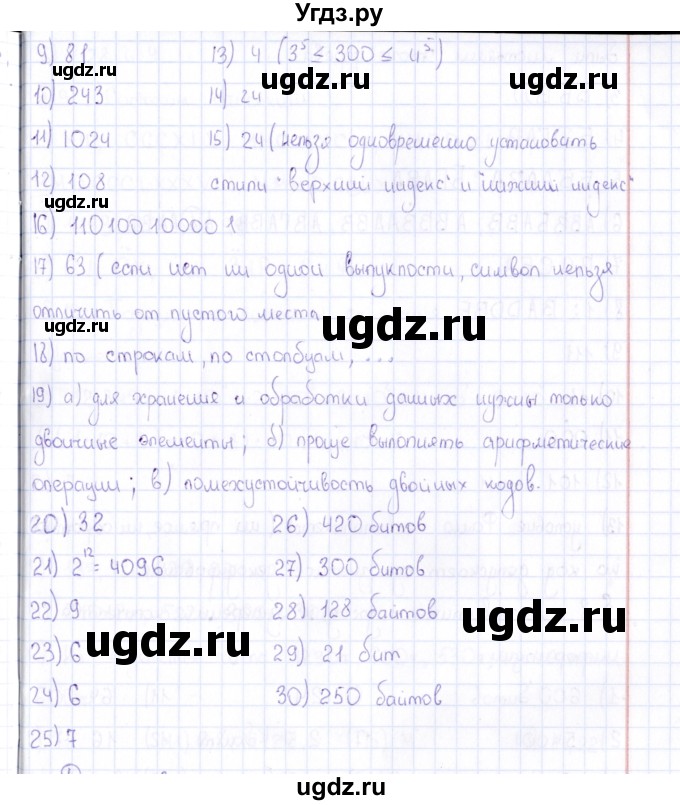 Угдз.ру
9) 81
13) 4 (3⁵ ≤ 300 ≤ 4⁵)
ugdz.ru
ugdz.ru
ugdz.ru
10) 243
14) 24
11) 1024
15) 24 (нельзя одновременно установить
12) 108
стили "верхний индекс" и "нижний индекс"
ugdz.ru
16) 110100100001
17) 63 (если нет ни одной выпуклости, символ нельзя
отличить от пустого места
ugdz.ru
ugdz.ru
18) по строкам, по столбцам, ...
19) а) для хранения и обработки данных нужны только
двоичные элементы; б) проще выполнять арифметические
операции; в) помехустойчивость двойных кодов.
20) 32
26) 420 битов
21) 2¹² = 4096
27) 300 битов
22) 9
28) 128 байтов
ugdz.ru
ugdz.ru
23) 6
29) 21 бит
24) 6
30) 250 байтов
25) 7
ugdz.ru